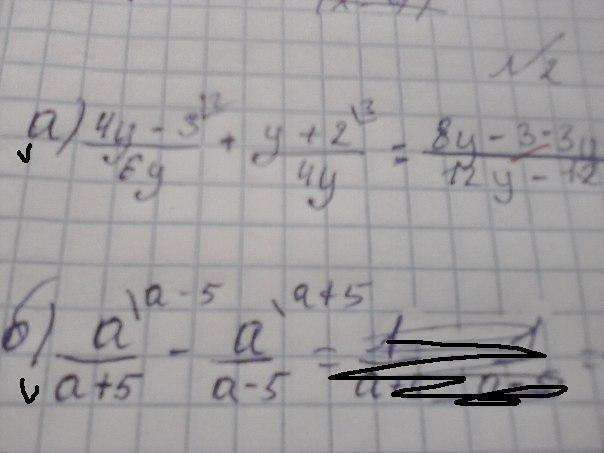 №2
а) (4y - 3)/(6y) \2 + (y + 2)/(4y) \3 = (8y - 3 - 3y)/(12y - 12)
б) a/(a+5) \a-5 - a/(a-5) \a+5 = =